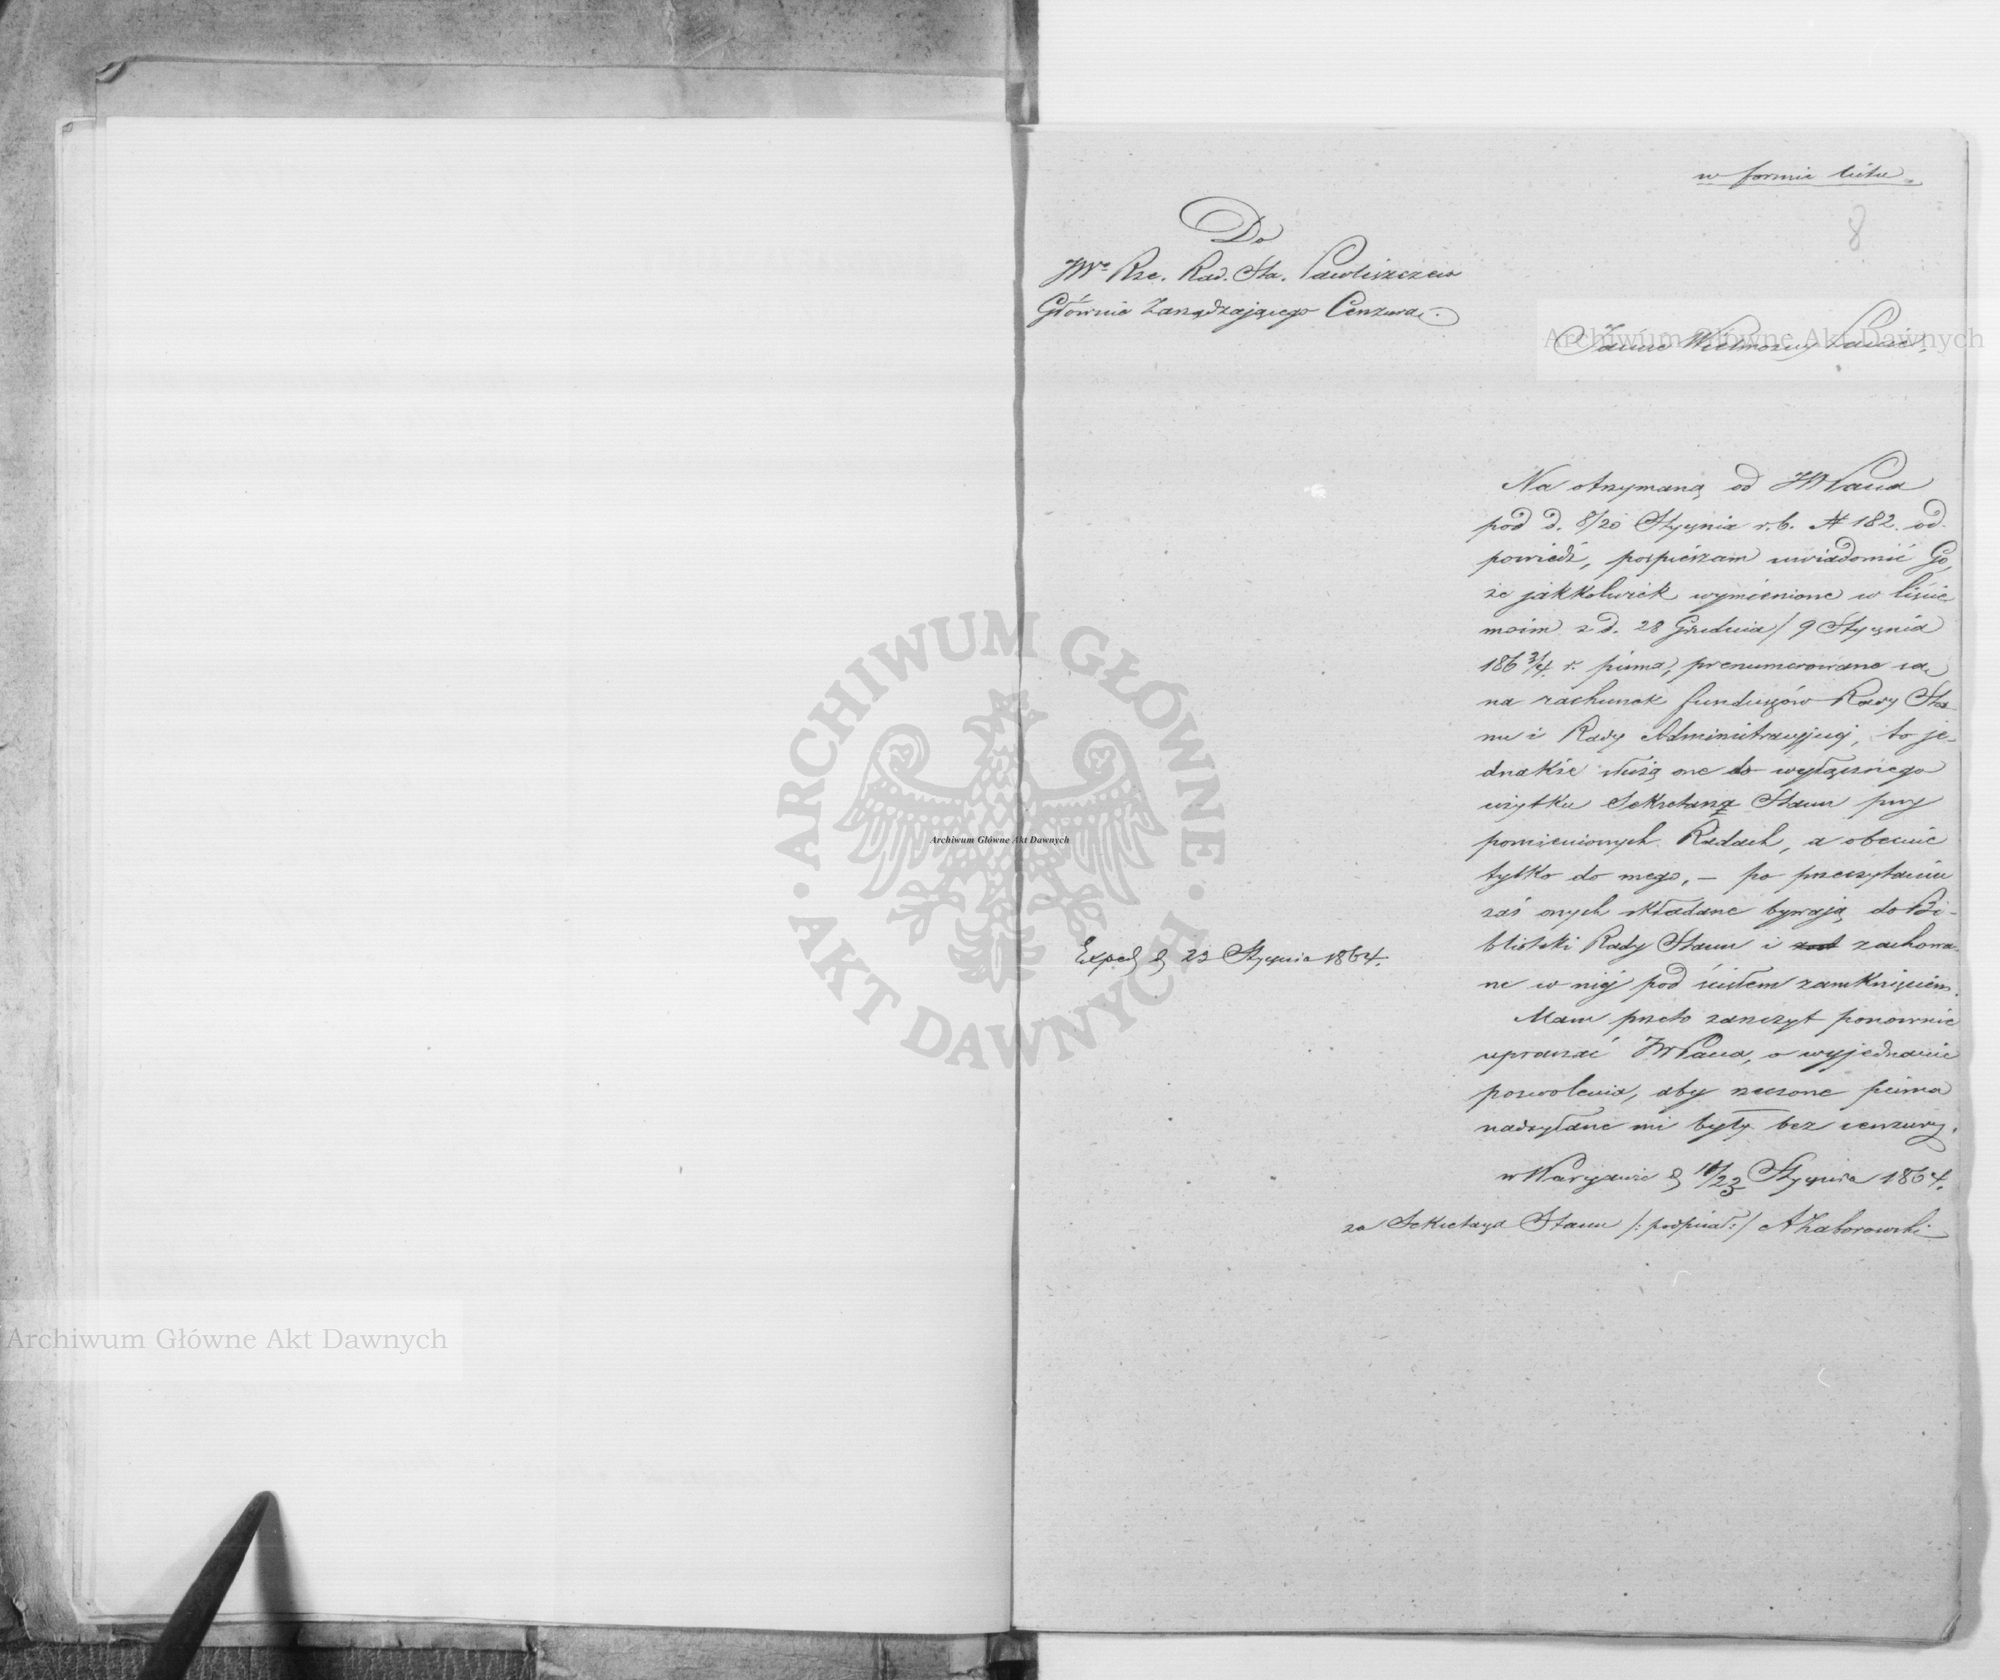 w formie listu.
8
Do
JWo Rze. Rad. Sta. Pawliszczew
Głównie Zarządzającego Cenzurą.
Jaśnie Wielmożny Panie,
Na otrzymaną od JWPana
pod d. 8/20 Stycznia r.b. N 182. od-
powiedź, pospieszam uwiadomić Go,
że jakkolwiek wymienione w liście
moim z d. 28 Grudnia/9 Stycznia
186 3/4 r. pisma, prenumerowane są
na rachunek funduszów Rady Sta-
nu i Rady Administracyjnej, to je-
dnakże służą one do wyłącznego
użytku Sekretarza Stanu przy
pomienionych Radach, a obecnie
tylko do mego, – po przeczytaniu
zaś onych składane bywają do Bi-
blioteki Rady Stanu i zachowa-
ne w niéj pod ścisłem zamknięciem.
Mam przeto zaszczyt ponownie
upraszać JWPana, o wyjednanie
pozwolenia, aby rzeczone pisma
nadsyłane mi były bez cenzury.
w Warszawie d 11/23 Stycznia 1864.
za Sekretarza Stanu /:podpisał:/ A Zaborowski
Exped d 23 Stycznia 1864.
Archiwum Główne Akt Dawnych
ARCHIWUM GŁÓWNE
AKT DAWNYCH
Archiwum Główne Akt Dawnych
Archiwum Główne Akt Dawnych